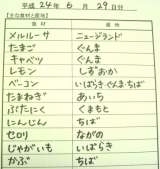 平成 24年 6月 29日分
【主な食材と産地】
食材 産地
メルルーサ ニュージーランド
たまご ぐんま
キャベツ ぐんま
レモン しずおか
ベーコン いばらき ぐんま ちば
たまねぎ あいち
ぶたにく くまもと
にんじん ちば
セロリ ながの
じゃがいも いばらき
かぶ ちば